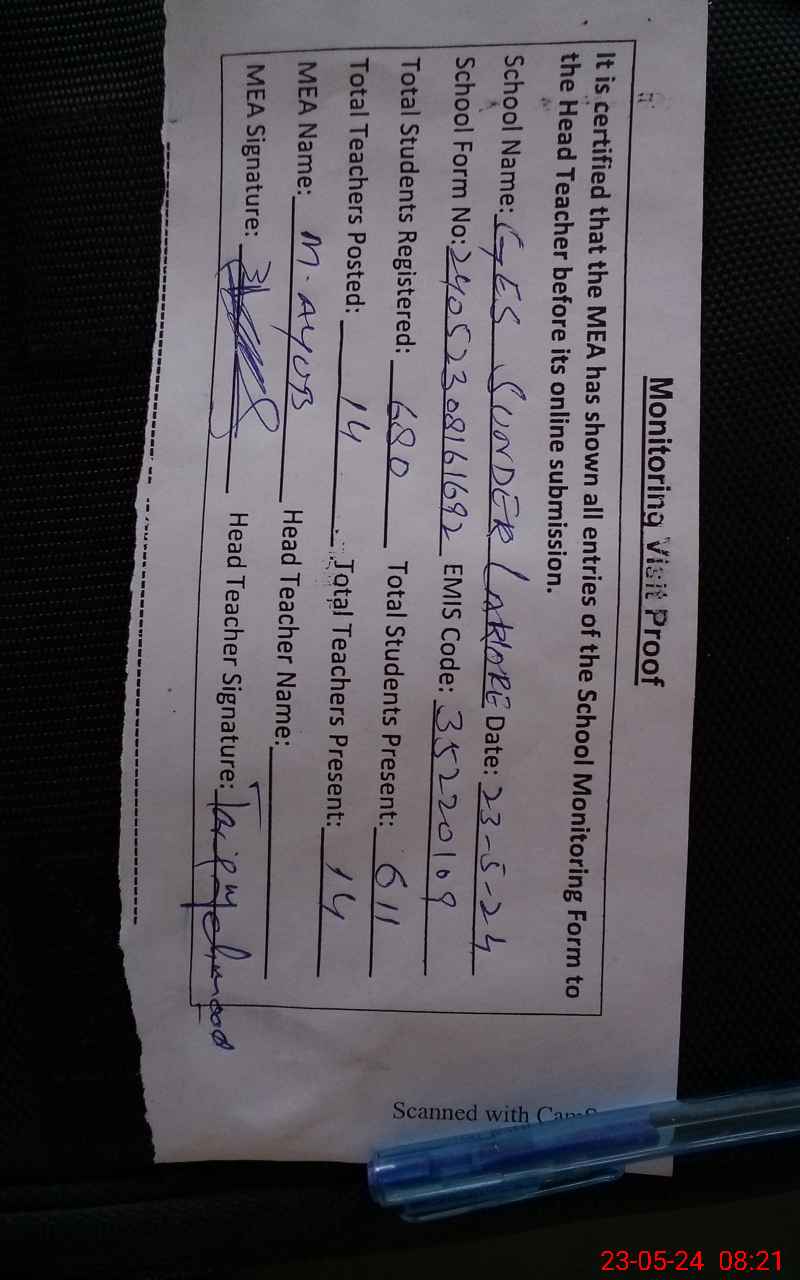 Monitoring Visit Proof
It is certified that the MEA has shown all entries of the School Monitoring Form to
the Head Teacher before its online submission.
School Name: GES SUNDER LAHORE Date: 23-5-24
School Form No: 24052308161692 EMIS Code: 35220109
Total Students Registered: 680 Total Students Present: 611
Total Teachers Posted: 14 Total Teachers Present: 14
MEA Name: M. AYUB Head Teacher Name:
MEA Signature: Head Teacher Signature: Tariq Mehmood
Scanned with
23-05-24 08:21